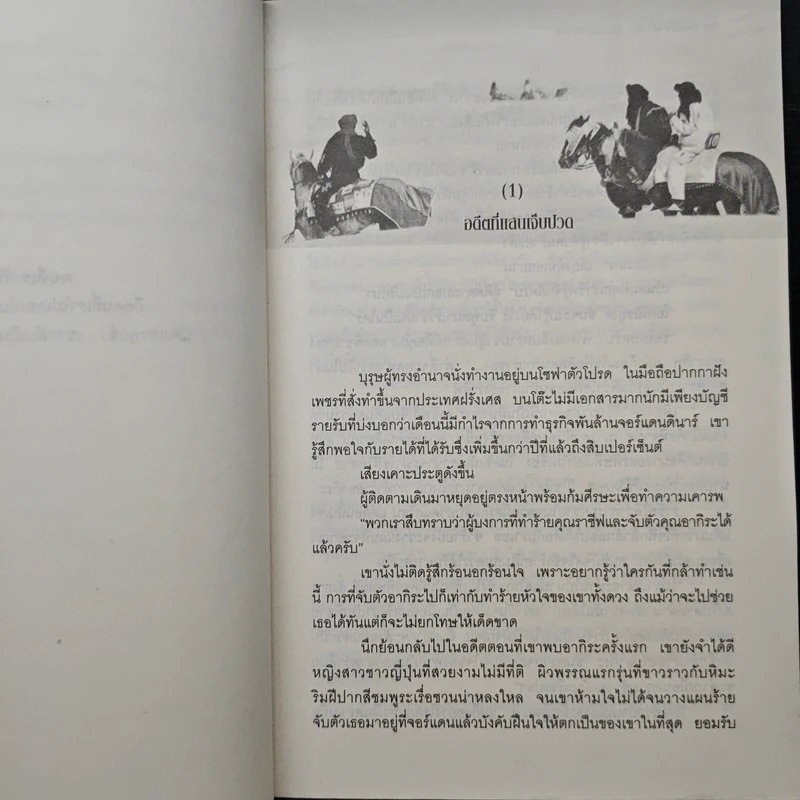 (1)
อดีตที่แสนเจ็บปวด
บุรุษผู้ทรงอำนาจนั่งทำงานอยู่บนโซฟาตัวโปรด ในมือถือปากกาฝัง
เพชรที่สั่งทำขึ้นจากประเทศฝรั่งเศส บนโต๊ะไม่มีเอกสารมากนักมีเพียงบัญชี
รายรับที่บ่งบอกว่าเดือนนี้มีกำไรจากการทำธุรกิจพันล้านจอร์แดนดินาร์ เขา
รู้สึกพอใจกับรายได้ที่ได้รับซึ่งเพิ่มขึ้นกว่าปีที่แล้วถึงสิบเปอร์เซ็นต์
เสียงเคาะประตูดังขึ้น
ผู้ติดตามเดินมาหยุดอยู่ตรงหน้าพร้อมก้มศีรษะเพื่อทำความเคารพ
"พวกเราสืบทราบว่าผู้บงการที่ทำร้ายคุณราชีฟและจับตัวคุณอากิระได้
แล้วครับ"
เขานั่งไม่ติดรู้สึกร้อนอกร้อนใจ เพราะอยากรู้ว่าใครกันที่กล้าทำเช่น
นี้ การที่จับตัวอากิระไปก็เท่ากับทำร้ายหัวใจของเขาทั้งดวง ถึงแม้ว่าจะไปช่วย
เธอได้ทันแต่ก็จะไม่ยกโทษให้เด็ดขาด
นึกย้อนกลับไปในอดีตตอนที่เขาพบอากิระครั้งแรก เขายังจำได้ดี
หญิงสาวชาวญี่ปุ่นที่สวยงามไม่มีที่ติ ผิวพรรณแรกรุ่นที่ขาวราวกับหิมะ
ริมฝีปากสีชมพูระเรื่อชวนน่าหลงใหล จนเขาห้ามใจไม่ได้จนวางแผนร้าย
จับตัวเธอมาอยู่ที่จอร์แดนแล้วบังคับฝืนใจให้ตกเป็นของเขาในที่สุด ยอมรับ